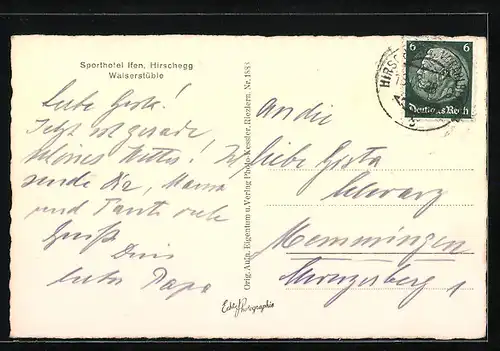 Sporthotel Ifen, Hirschegg
Walserstüble
Liebe Gerta!
Jetzt ist gerade
schönes Wetter! Ich
sende Dir, Mama
und Tante viele
Grüße
Dein
lieber Papa
Orig. Aufn. Eigentum u. Verlag Photo-Kessler, Riezlern, Nr. 1883
Echte Photographie
HIRSCHEGG
6 6
Deutsches Reich
An die
liebe Gerta
Schwarz
Memmingen
1